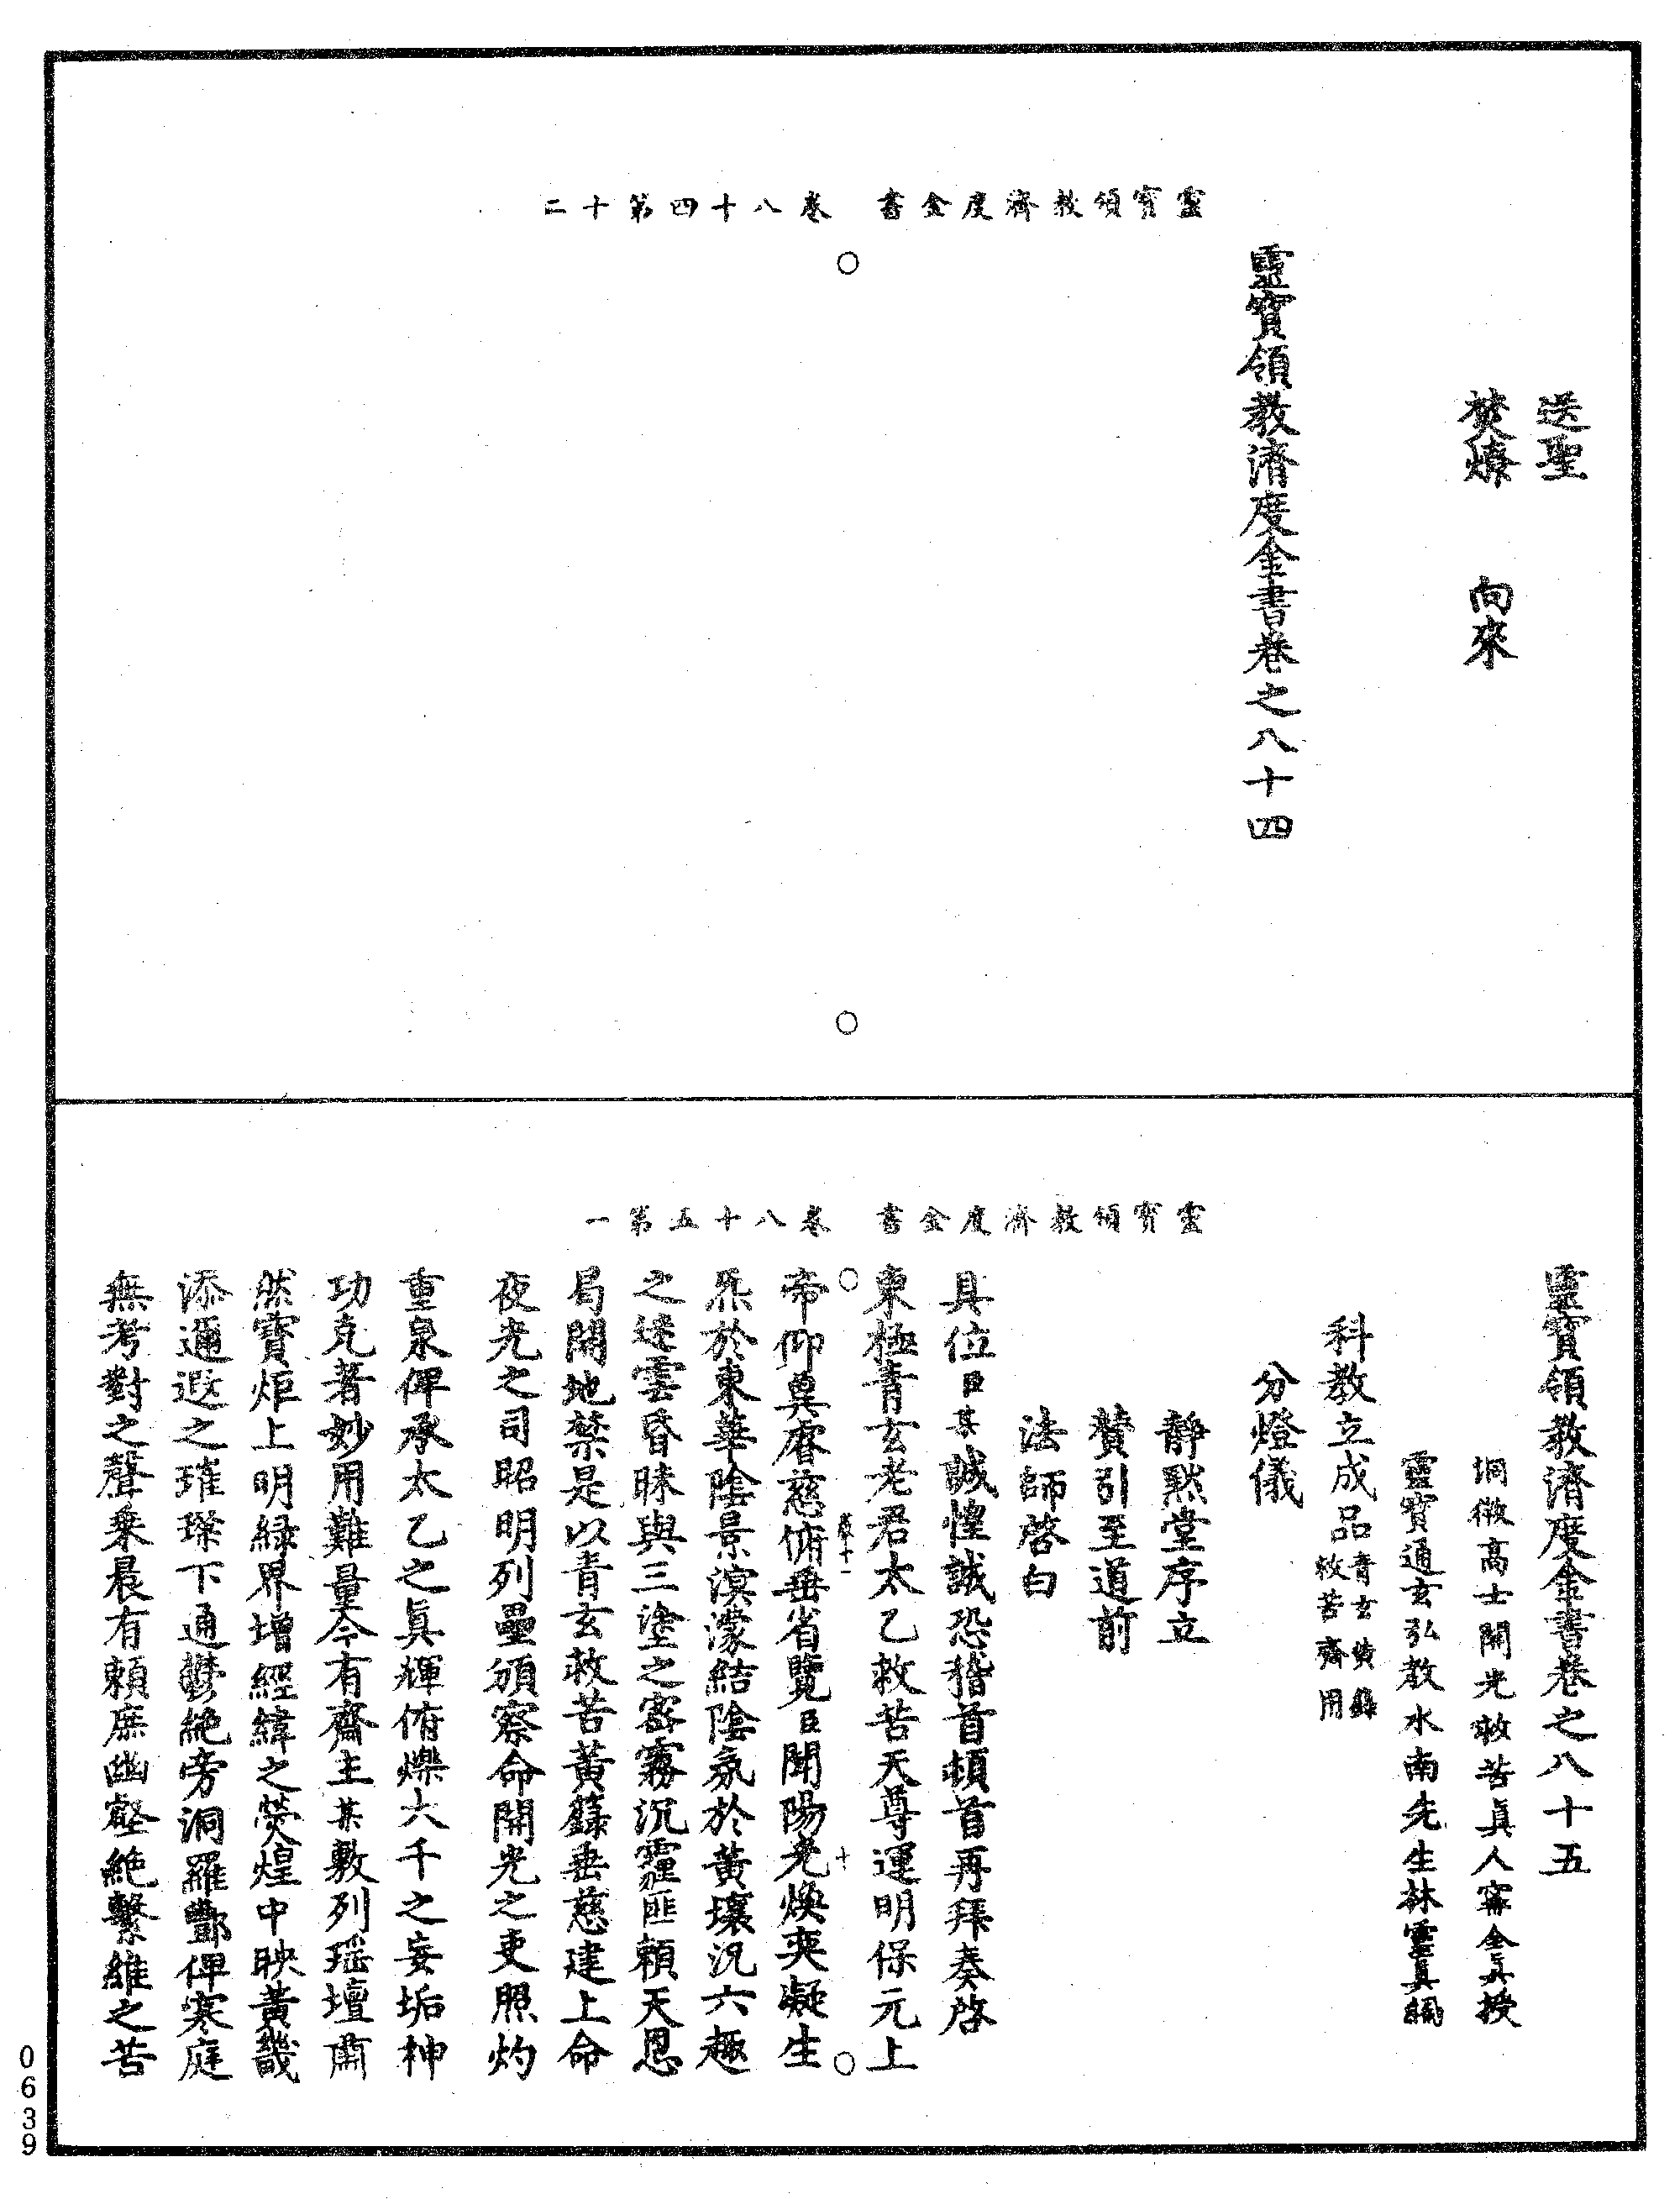 靈寶領教濟度金書　卷八十四第十二
送聖
焚燎　向來
靈寶領教濟度金書卷之八十四
靈寶領教濟度金書　卷八十五第一
靈寶領教濟度金書卷之八十五
洞微高士開光救苦眞人甯全眞授
靈寶通玄弘教水南先生林靈眞編
科教立成品青玄黄籙救苦齋用
分燈儀
靜默堂序立
賛引至道前
法師啓白
具位臣某誠惶誠恐稽首頓首再拜奏啓
東極青玄老君太乙救苦天尊運明保元上
帝仰奠睿慈俯垂省覽臣聞陽尭煥奕凝生
炁於東華陰景溟濛結陰氛於黃壤況六趣
之逵雲昏昧與三塗之窞霧沉霾匪頼天恩
局開地禁是以青玄救苦黃籙垂慈建上命
夜光之司昭明列壘頒察命開光之吏照灼
重泉俾承太乙之眞輝俯爍六千之妄垢神
功克著妙用難量今有齋主某敷列瑶壇肅
然寶炬上明緑界增經緯之熒煌中映黃畿
添邇遐之璀璨下通鬱絶旁洞羅酆俾寒庭
無考對之聲乗晨有頼庶幽壑絶繫維之苦
卷十一
十
0639